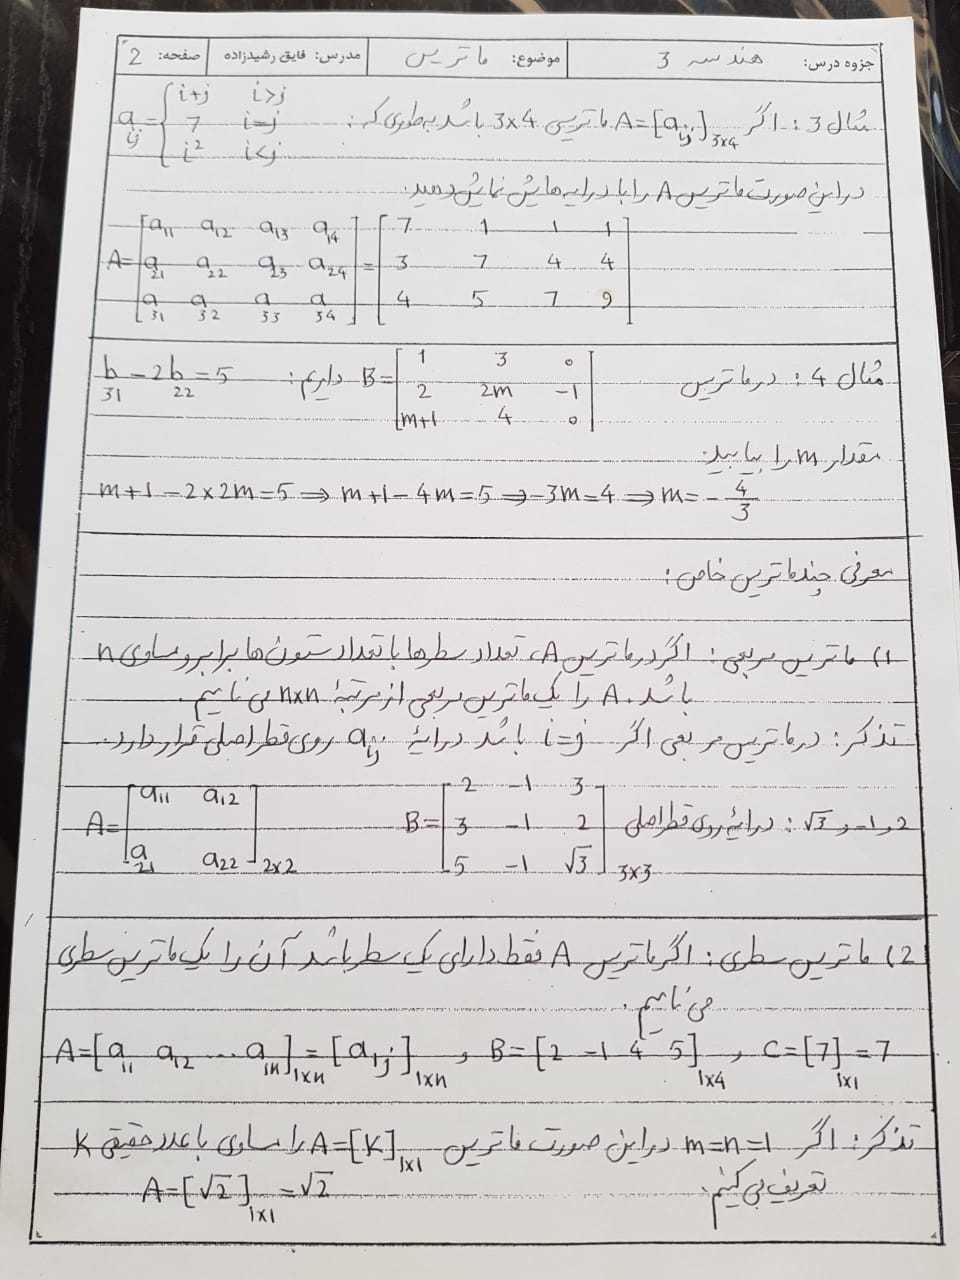 جزوه درس: هندسه 3 موضوع: ماتریس مدرس: فایق رشیدزاده صفحه: 2
مثال 3: اگر A=[aij]3×4 ماتریسی 3×4 باشد به طوری که: aij = { i+j i>j
7 i=j
i² i<j
در این صورت ماتریس A را با درایه هایش نمایش دهید.
A= [a11 a12 a13 a14 = [7 1 1 1
a21 a22 a23 a24 3 7 4 4
a31 a32 a33 a34] 4 5 7 9]
مثال 4: در ماتریس B= [1 3 0 داریم: b31 - 2b22 = 5
2 2m -1
m+1 4 0]
مقدار m را بیابید.
m+1-2×2m=5 ⇒ m+1-4m=5 ⇒ -3m=4 ⇒ m=-4/3
معرفی چند ماتریس خاص:
1) ماتریس مربعی: اگر در ماتریس A، تعداد سطرها با تعداد ستون ها برابر و مساوی n
باشد. A را یک ماتریس مربعی از مرتبهٔ n×n می نامیم.
تذکر: در ماتریس مربعی اگر i=j باشد درایهٔ aij روی قطر اصلی قرار دارد.
A= [a11 a12 B= [2 -1 3
a21 a22]2×2 3 -1 2
5 -1 √3]3×3
2 و -1 و √3: درایهٔ روی قطر اصلی
2) ماتریس سطری: اگر ماتریس A فقط دارای یک سطر باشد آن را یک ماتریس سطری
می نامیم.
A=[a11 a12 ... a1n]1×n=[a1j]1×n , B=[2 -1 4 5]1×4 , C=[7]1×1=7
تذکر: اگر m=n=1 در این صورت ماتریس A=[K]1×1 را مساوی با عدد حقیقی K
تعریف می کنیم.
A=[√2]1×1=√2